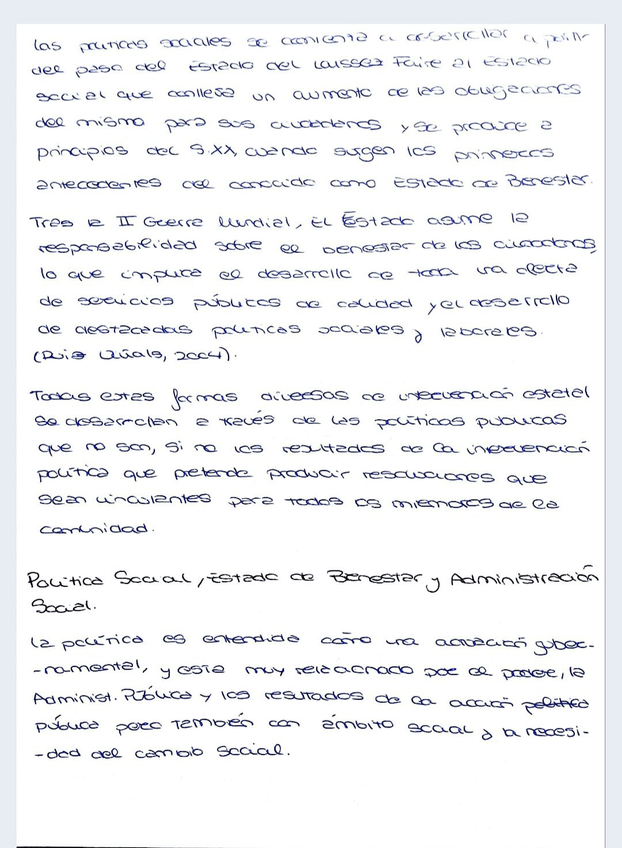 Las políticas sociales se comienza a desarrollar a partir
del paso del Estado del Laissez Faire al Estado
social que conlleva un aumento de las obligaciones
del mismo para sus ciudadanos y se produce a
principios del S.XX, cuando surgen los primeros
antecedentes del conocido como Estado de Benestar.
Tras la II Guerra Mundial, El Estado asume la
responsabilidad sobre el benestar de los ciudadanos,
lo que implica el desarrollo de toda una oferta
de servicios públicos de calidad y el desarrollo
de destacadas políticas sociales y laborales.
(Ruiz Viñals, 2004).
Todas estas formas diversas de intervención estatal
se desarrollan a través de las políticas publicas
que no son, si no los resultados de la intervención
política que pretende producir resoluciones que
sean vinculantes para todos os miembros de la
comunidad.
Política Social, Estado de Benestar y Administración
Social.
La política es entendida como una actuación guber-
-namental, y esta muy relacionado por el poder, la
Administ. Pública y los resultados de la acción política
pública pero también con ámbito social y la necesi-
-dad del cambio social.